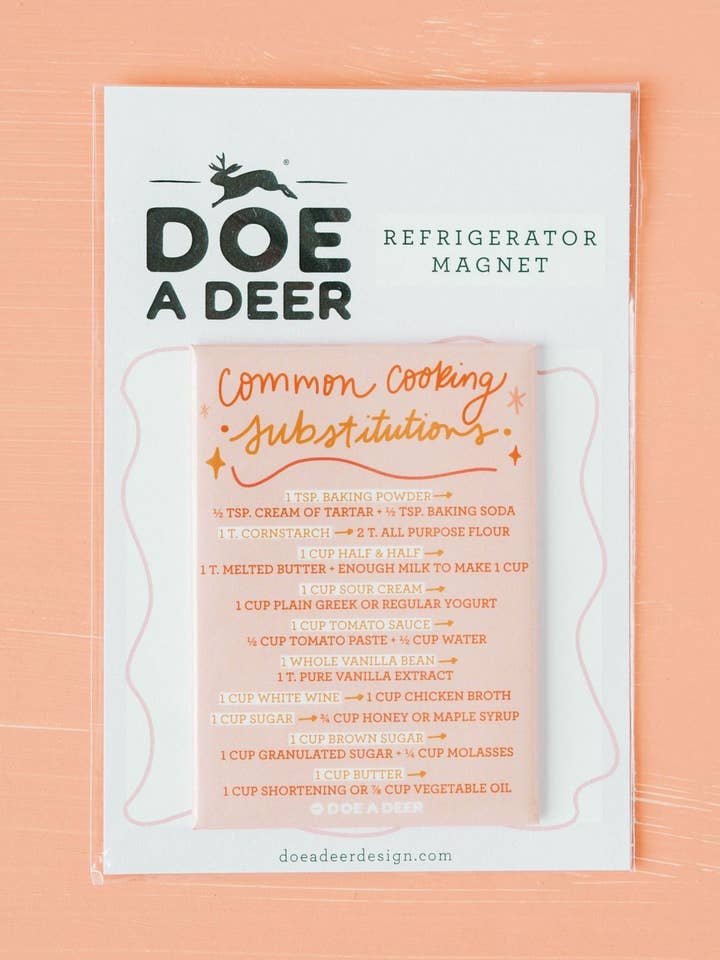 ®
DOE
A DEER
REFRIGERATOR
MAGNET
common cooking
substitutions
1 TSP. BAKING POWDER →
½ TSP. CREAM OF TARTAR + ½ TSP. BAKING SODA
1 T. CORNSTARCH → 2 T. ALL PURPOSE FLOUR
1 CUP HALF & HALF →
1 T. MELTED BUTTER + ENOUGH MILK TO MAKE 1 CUP
1 CUP SOUR CREAM →
1 CUP PLAIN GREEK OR REGULAR YOGURT
1 CUP TOMATO SAUCE →
½ CUP TOMATO PASTE + ½ CUP WATER
1 WHOLE VANILLA BEAN →
1 T. PURE VANILLA EXTRACT
1 CUP WHITE WINE → 1 CUP CHICKEN BROTH
1 CUP SUGAR → ¾ CUP HONEY OR MAPLE SYRUP
1 CUP BROWN SUGAR →
1 CUP GRANULATED SUGAR + ¼ CUP MOLASSES
1 CUP BUTTER →
1 CUP SHORTENING OR ⅞ CUP VEGETABLE OIL
DOE A DEER
doeadeerdesign.com